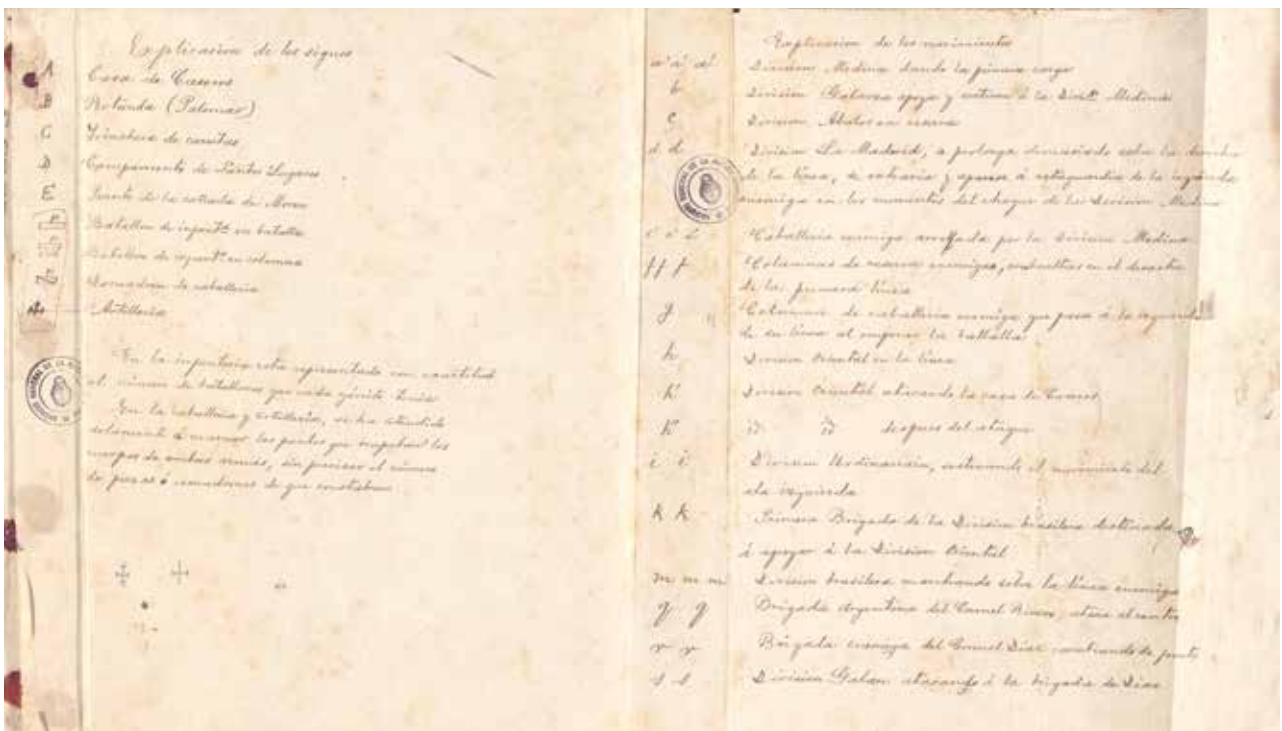 Explicacion de los signos
A Casa de Caseros
B Rotunda (Palomar)
C Trinchera de carretas
D Campamento de Santos Lugares
E Puente de la cañada de Moron
Batallon de infantª en batalla
Batallon de infantª en columna
Escuadron de caballeria
Artilleria
En la infanteria esta representado con exactitud
el número de batallones que cada ejército tenia
En la caballeria y artilleria, se ha atendido
solamente á marcar los puntos que ocupaban los
cuerpos de ambas armas, sin precisar el número
de piezas ó escuadrones de que constaban
Explicacion de los movimientos
a' a' a' Division Medina dando la primera carga
b Division Galarza apoya y sostiene á la Divⁿ Medina
c Division Abalos en reserva
d d Division La Madrid, se prolonga demasiado sobre la derecha
de la línea, se extravia y aparece á retaguardia de la izquierda
enemiga en los momentos del choque de la Division Medina
e e e Caballeria enemiga arrollada por la division Medina
f f f Columnas de reserva enemigas, envueltas en el desastre
de la primera línea
g Columna de caballeria enemiga que pasa á la izquierda
de su línea al empezar la batalla
h Division Oriental en la línea
h' Division Oriental atacando la casa de Caseros
h'' id id despues del ataque
i i Division Urdinarrain, sosteniendo el movimiento del
ala izquierda
k k Primera Brigada de la Division brasilera destinada
á apoyar á la Division Oriental
m m m Division brasilera marchando sobre la línea enemiga
q q Brigada Argentina del Coronel Rivero, ataca al centro
r r Brigada enemiga del Coronel Diaz cambiando de frente
s s Division Galan atacando á la brigada de Diaz